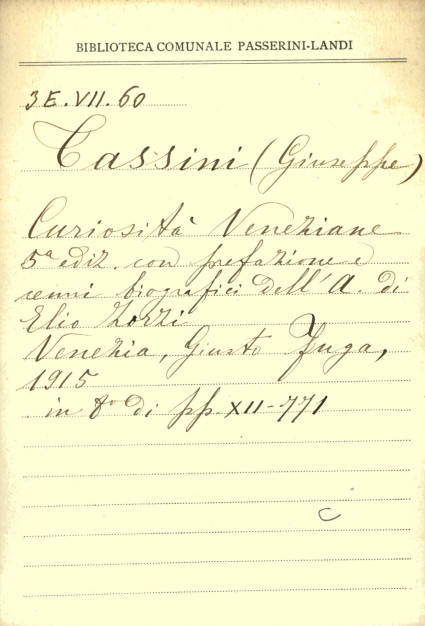 BIBLIOTECA COMUNALE PASSERINI-LANDI
3E.VII.60
Tassini (Giuseppe)
Curiosità Veneziane
5ª ediz. con prefazione e
cenni biografici dell'A. di
Elio Zorzi
Venezia, Giusto Fuga,
1915
in 8º di pp. XII-771
C